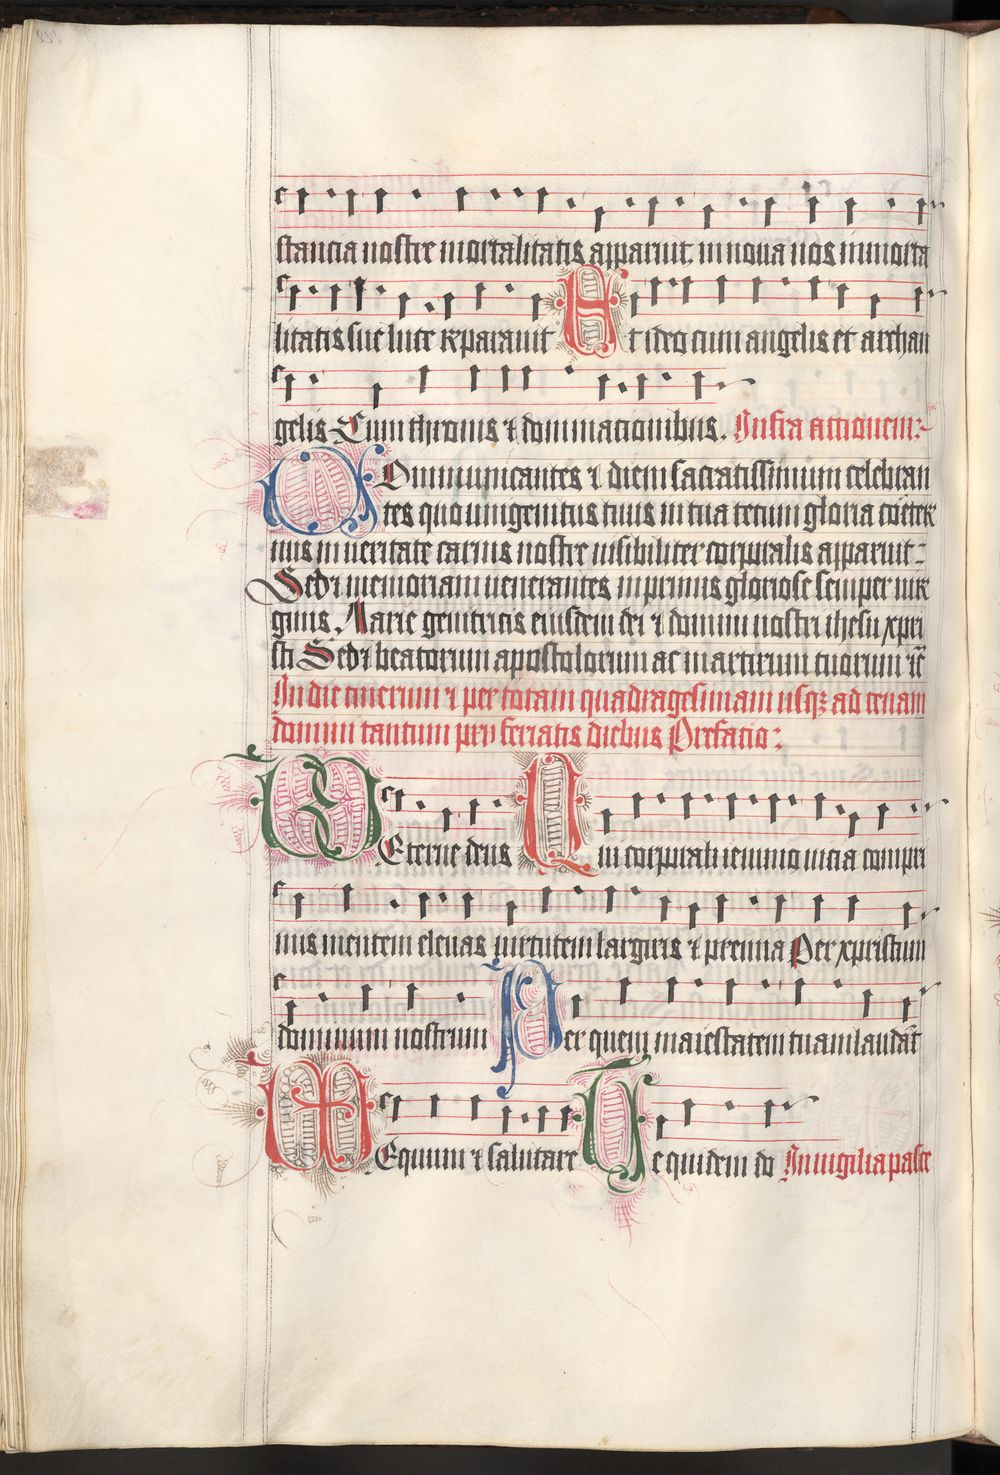 stancia nostre mortalitatis apparuit in noua nos inmorta
litatis sue luce reparauit Et ideo cum angelis et archan
gelis Cum thronis ⁊ dominacionibus. Infra actionem:
COmmunicantes ⁊ diem sacratissimum celebran
tes quo unigenitus tuus in tua tecum gloria coeter
nus in ueritate carnis nostre uisibiliter corporalis apparuit
Sed ⁊ memoriam uenerantes in primis gloriose semper uir
ginis Marie genitricis eiusdem dei ⁊ domini nostri ihesu xpri
sti Sed ⁊ beatorum apostolorum ac martirum tuorum ⁊c̄
In die cinerum ⁊ per totam quadragesimam usqꝫ ad cenam
domini tantum pro feriatis diebus Prefacio:
Eterne deus Qui corporali ieiunio uicia compri
mis mentem eleuas uirtutem largiris ⁊ premia Per xpristum
dominum nostrum Per quem maiestatem tuam laudāt
Equum ⁊ salutare Te quidem do In uigilia pasce